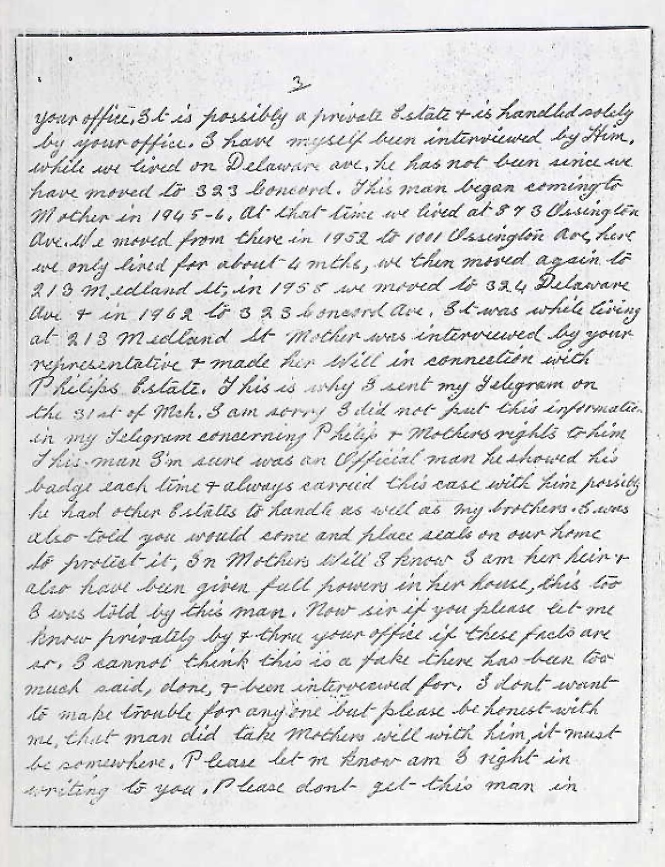 3
your office. It is possibly a private Estate & is handled solely
by your office. I have myself been interviewed by Him,
while we lived on Delaware ave, he has not been since we
have moved to 323 Concord. This man began coming to
Mother in 1945-6. At that time we lived at 873 Ossington
Ave. We moved from there in 1952 to 1001 Ossington Ave, here
we only lived for about 4 mths, we then moved again to
213 Medland St, in 1955 we moved to 324 Delaware
Ave & in 1962 to 323 Concord Ave. It was while living
at 213 Medland St Mother was interviewed by your
representative & made her Will in connection with
Philips Estate. This is why I sent my Telegram on
the 31st of Mch. I am sorry I did not put this information
in my Telegram concerning Philip & Mothers rights to him
This man I'm sure was an Official man he showed his
badge each time & always carried this case with him possibly
he had other Estates to handle as well as my brothers. I was
also told you would come and place seals on our home
to protect it, In Mothers Will I know I am her heir &
also have been given full powers in her house, this too
I was told by this man. Now sir if you please let me
know privately by & thru your office if these facts are
so. I cannot think this is a fake there has been too
much said, done, & been interviewed for. I dont want
to make trouble for anyone but please be honest with
me, that man did take Mothers will with him, it must
be somewhere. Please let m know am I right in
writing to you. Please dont get this man in